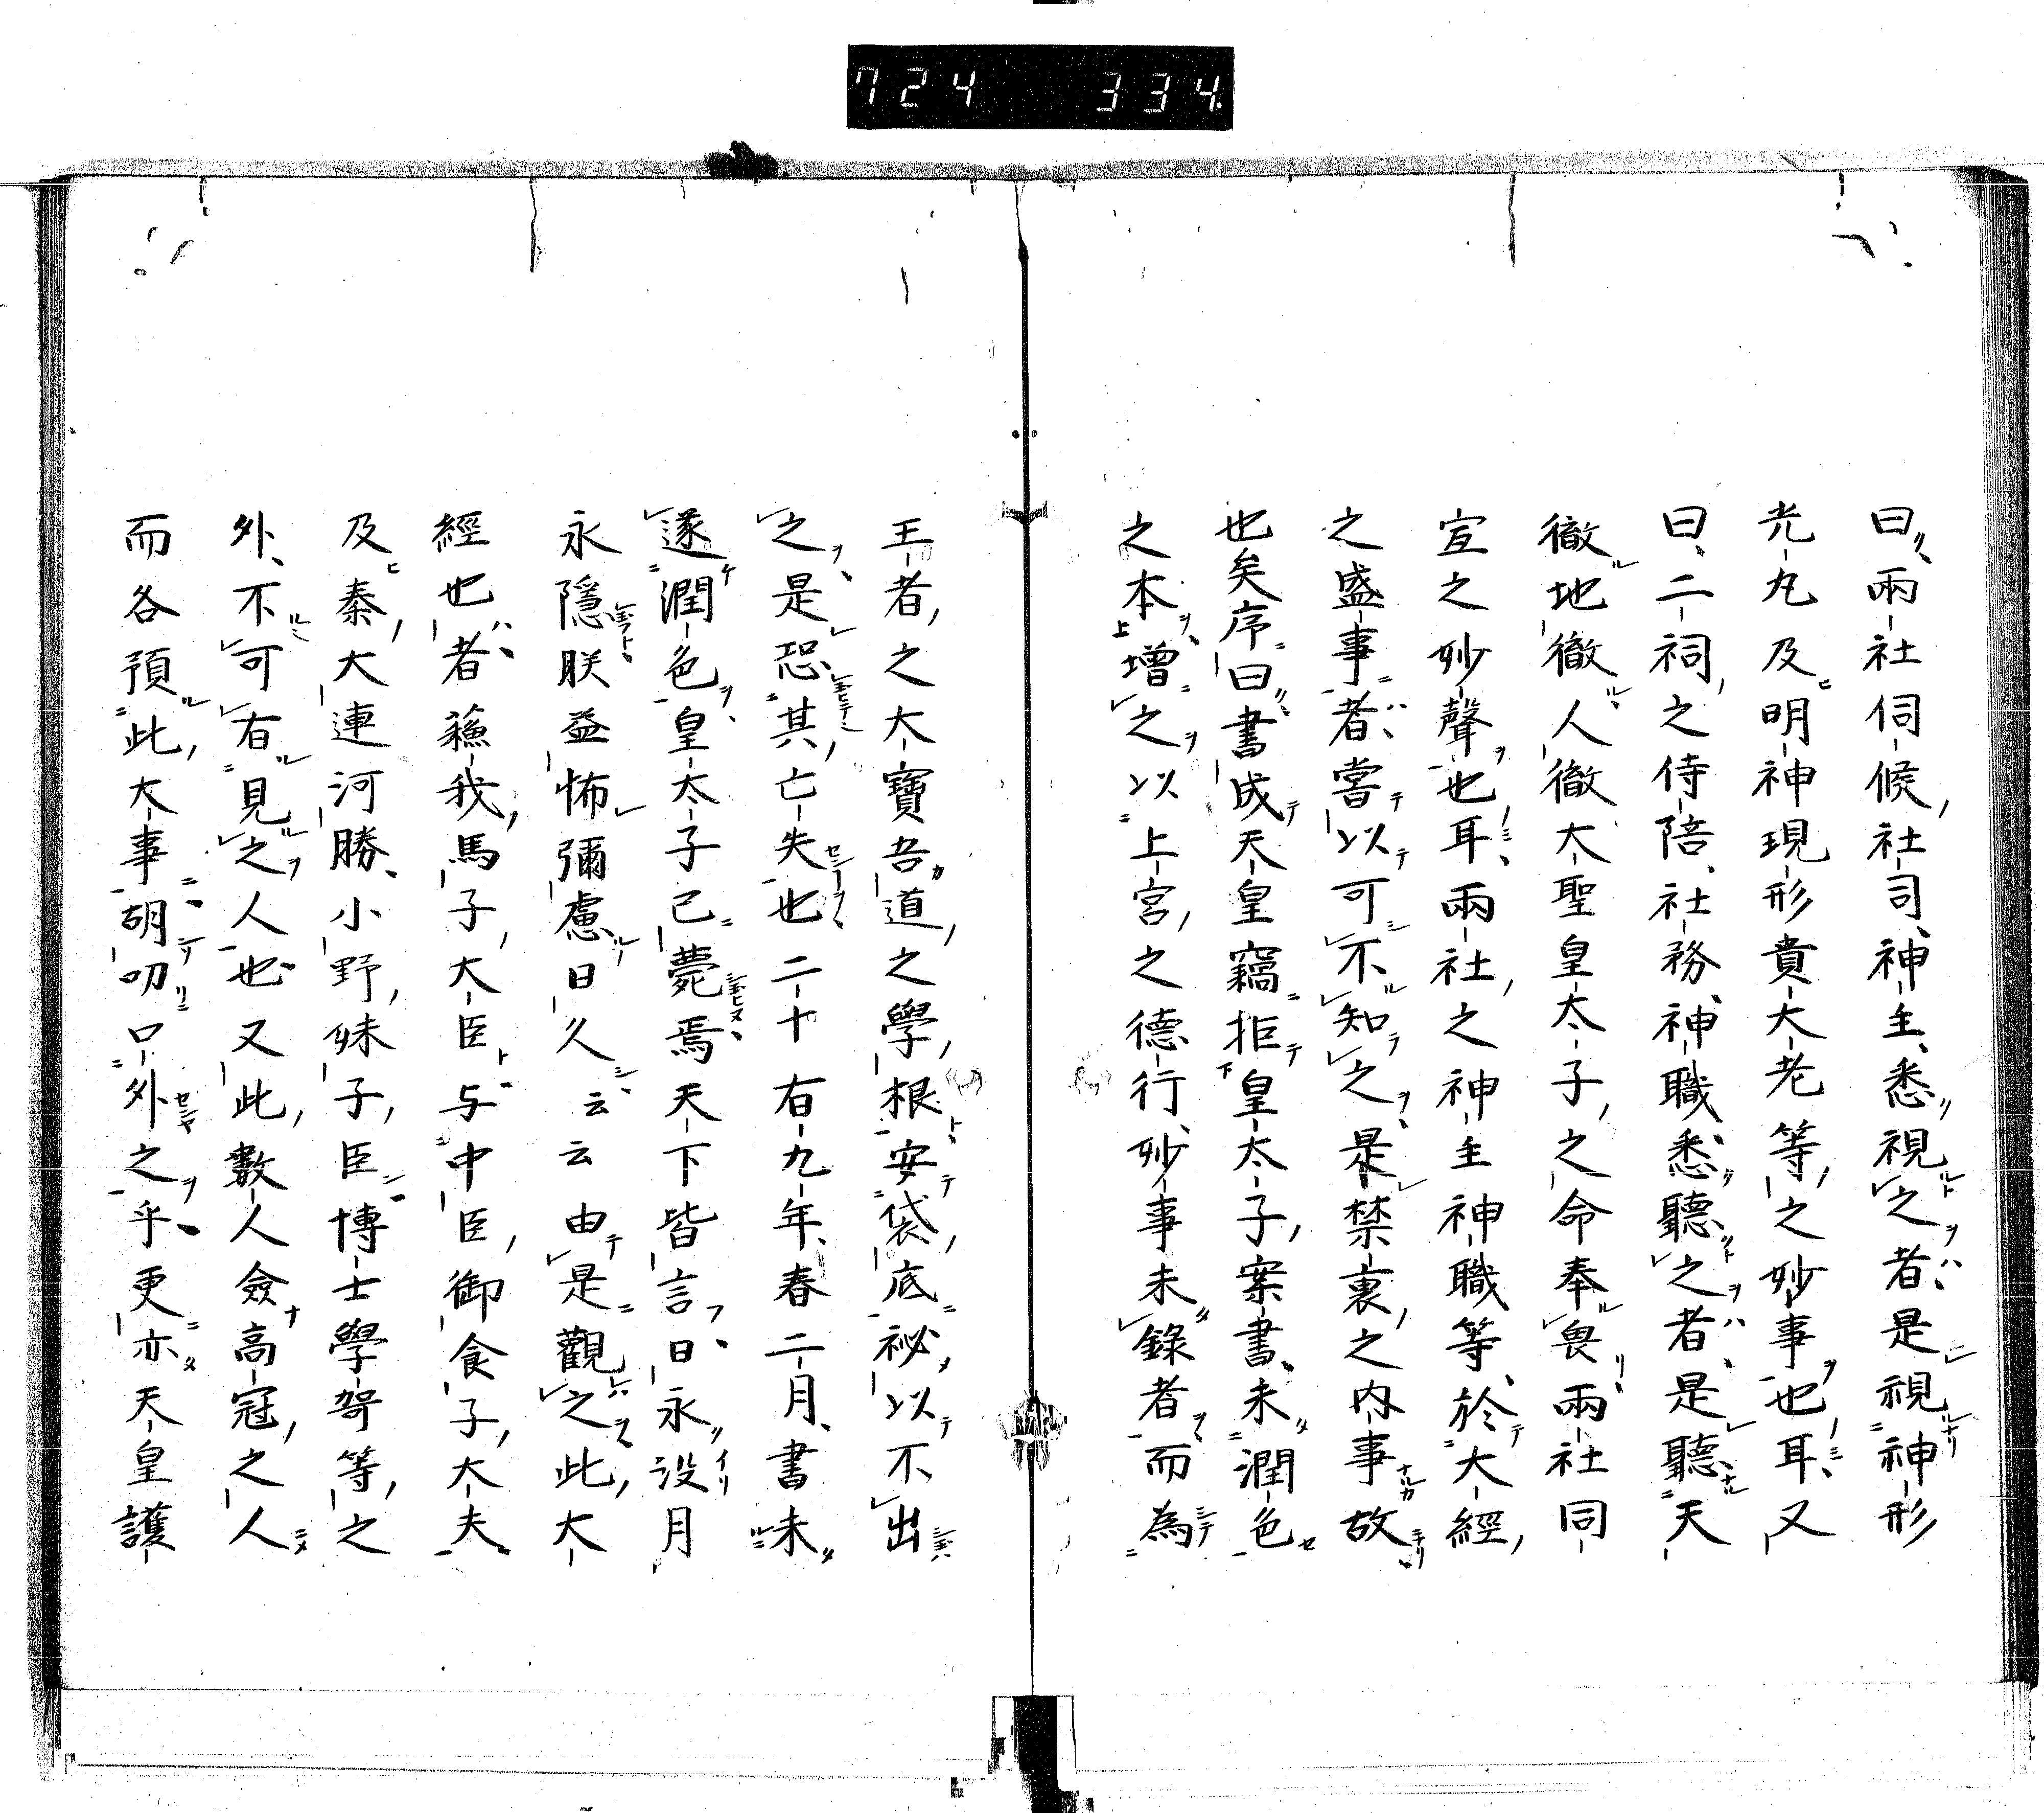 724 334
曰兩社伺候社司神主悉視之者是視神形
光丸及明神現形貴大老等之妙事也耳又
曰二祠之侍陪社務神職悉聽之者是聽天
徹地徹人徹大聖皇太子之命奉畏兩社同
宣之妙聲也耳兩社之神主神職等於大經
之盛事者嘗以可不知之是禁裏之内事故
也矣序曰書成天皇竊拒皇太子案書未潤色
之本增之以上宮之德行妙事未錄者而為
王者之大寶吾道之學根安袋底祕以不出
之是恐其亡失也二十有九年春二月書未
遂潤色皇太子已薨焉天下皆言日永没月
永隱朕益怖彌慮日久云云由是觀之此大
經也者蘓我馬子大臣与中臣御食子大夫
及秦大連河勝小野妹子臣博士學哿等之
外不可有見之人也又此數人僉高冠之人
而各預此大事胡叨口外之乎更亦天皇護